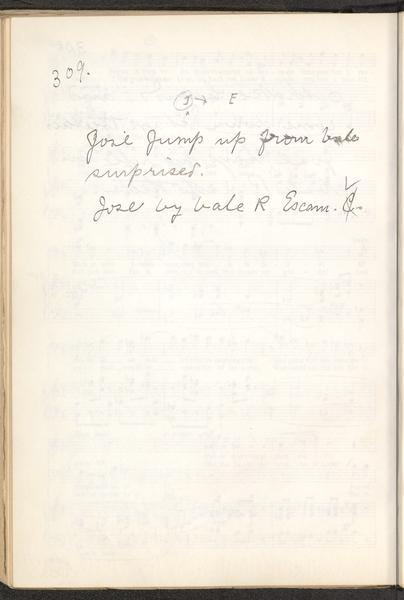 309.
J → E
José Jump up from bale
surprised.
José by bale R Escam. C.